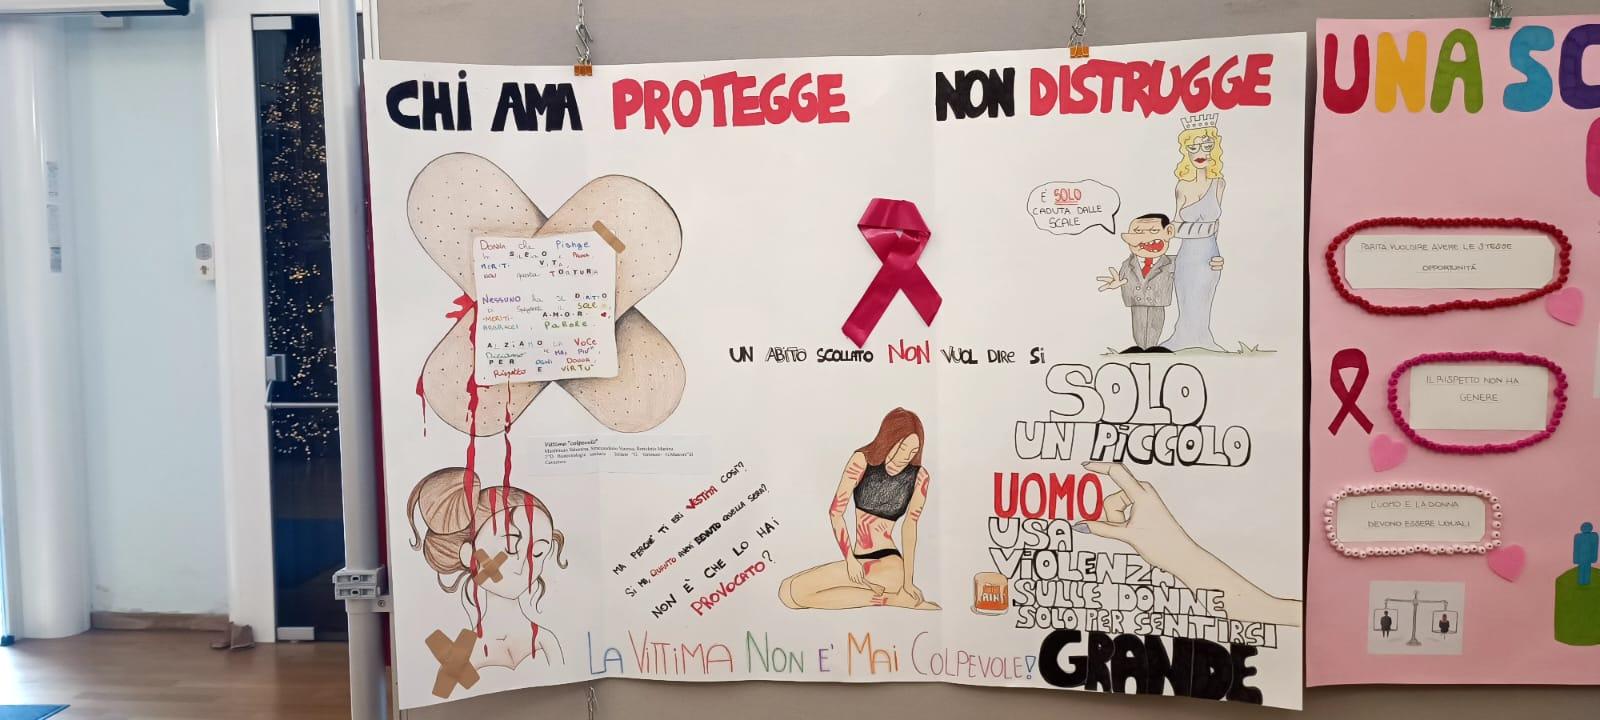 CHI AMA PROTEGGE NON DISTRUGGE
Donna che Piange
in SILENZIO e PAURA,
MERITI VITA,
non questa TORTURA
NESSUNO ha il DIRITTO
di spegnere il SOLE
MERITI AMORE
ABBRACCI, PAROLE.
ALZIAMO LA VOCE
Diciamo "MAI PIÙ"
PER OGNI DONNA,
Rispetto E VIRTÙ
Vittima "colpevole"
È SOLO
CADUTA DALLE
SCALE
UN ABITO SCOLLATO NON VUOL DIRE SI
MA PERCHÈ TI ERI VESTITA COSÌ?
SI MA, QUANTO AVEVI BEVUTO QUELLA SERA?
NON È CHE LO HAI
PROVOCATO?
SOLO
UN PICCOLO
UOMO
USA
VIOLENZA
SULLE DONNE
SOLO PER SENTIRSI
GRANDE
LA VITTIMA NON E' MAI COLPEVOLE!
UNA SC
PARITÀ VUOL DIRE AVERE LE STESSE
OPPORTUNITÀ
IL RISPETTO NON HA
GENERE
L'UOMO E LA DONNA
DEVONO ESSERE UGUALI